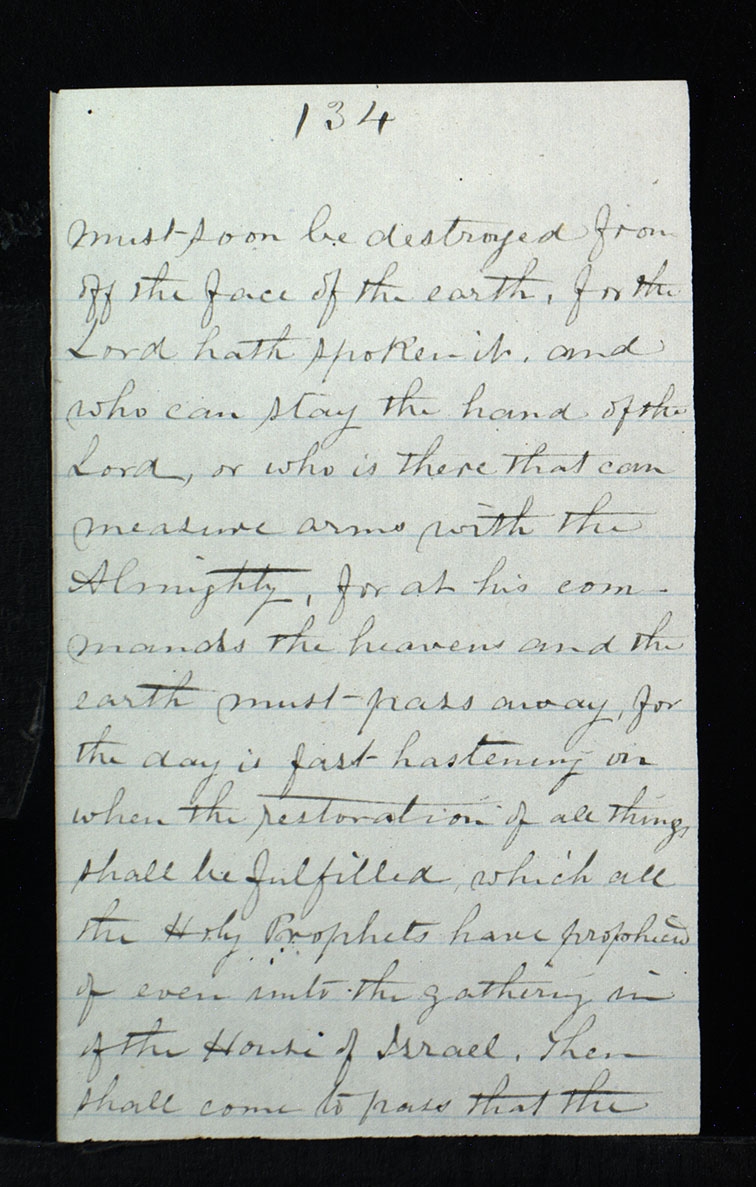 134
must soon be destroyed from
off the face of the earth, for the
Lord hath spoken it, and
who can stay the hand of the
Lord, or who is there that can
measure arms with the
Almighty, for at his com-
mands the heavens and the
earth must pass away, for
the day is fast hastening on
when the restoration of all things
shall be fulfilled, which all
the Holy Prophets have prophecied
of even unto the gathering in
of the House of Israel. Then
shall come to pass that the